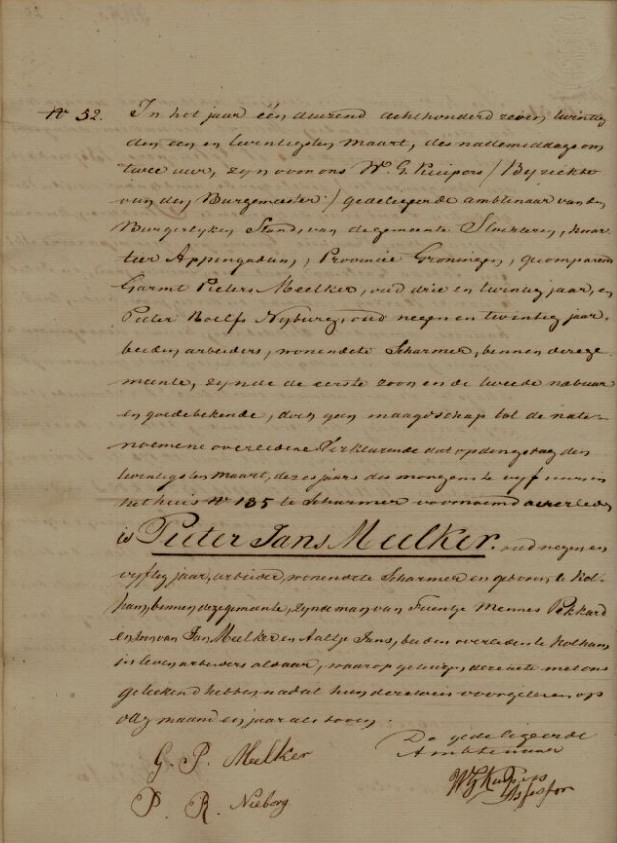 No 52. In het jaar één duizend achthonderd zeven twintig
den een en twintigsten Maart, des nademiddags om
twee uur, zyn voor ons W. G. Kuipers / By ziekte
van den Burgemeester / gedelegeerde ambtenaar van den
Burgerlyken Stand, van de gemeente Slochteren, kwar
tier Appingadam, Provincie Groningen, gecompareerd
Garmt Pieters Meelker, oud drie en twintig jaar, en
Pieter Roelfs Nyburg, oud negen en twintig jaar,
beiden arbeiders, wonende te Scharmer, binnen deze ge
meente, zynde de eerste zoon en de tweede nabuur
en goede bekende, doch geen maagdschap tot de nate-
noemene overledene Verklarende dat op dingsdag den
twintigsten Maart, dezes jaars des morgens te vyf uur in
het huis No 135 te Scharmer voornoemd overleden
is Pieter Jans Meelker. oud negen en
vyftig jaar, arbeider, wonende te Scharmer en geboren te Kol-
ham, binnen deze gemeente, zynde man van Fuentje Mennes Pekkard
en zoon van Jan Meelker en Aaltje Jans, beiden overleden te Kolham
in leven arbeiders aldaar, waarop getuigen deze acte met ons
geteekend hebben nadat hun dezelve is voorgelezen op
dag maand en jaar als boven.
De gedeligeerde
Ambtenaar
G. P. Meelker
W G Kuipers
Assessor
P. R. Nieborg